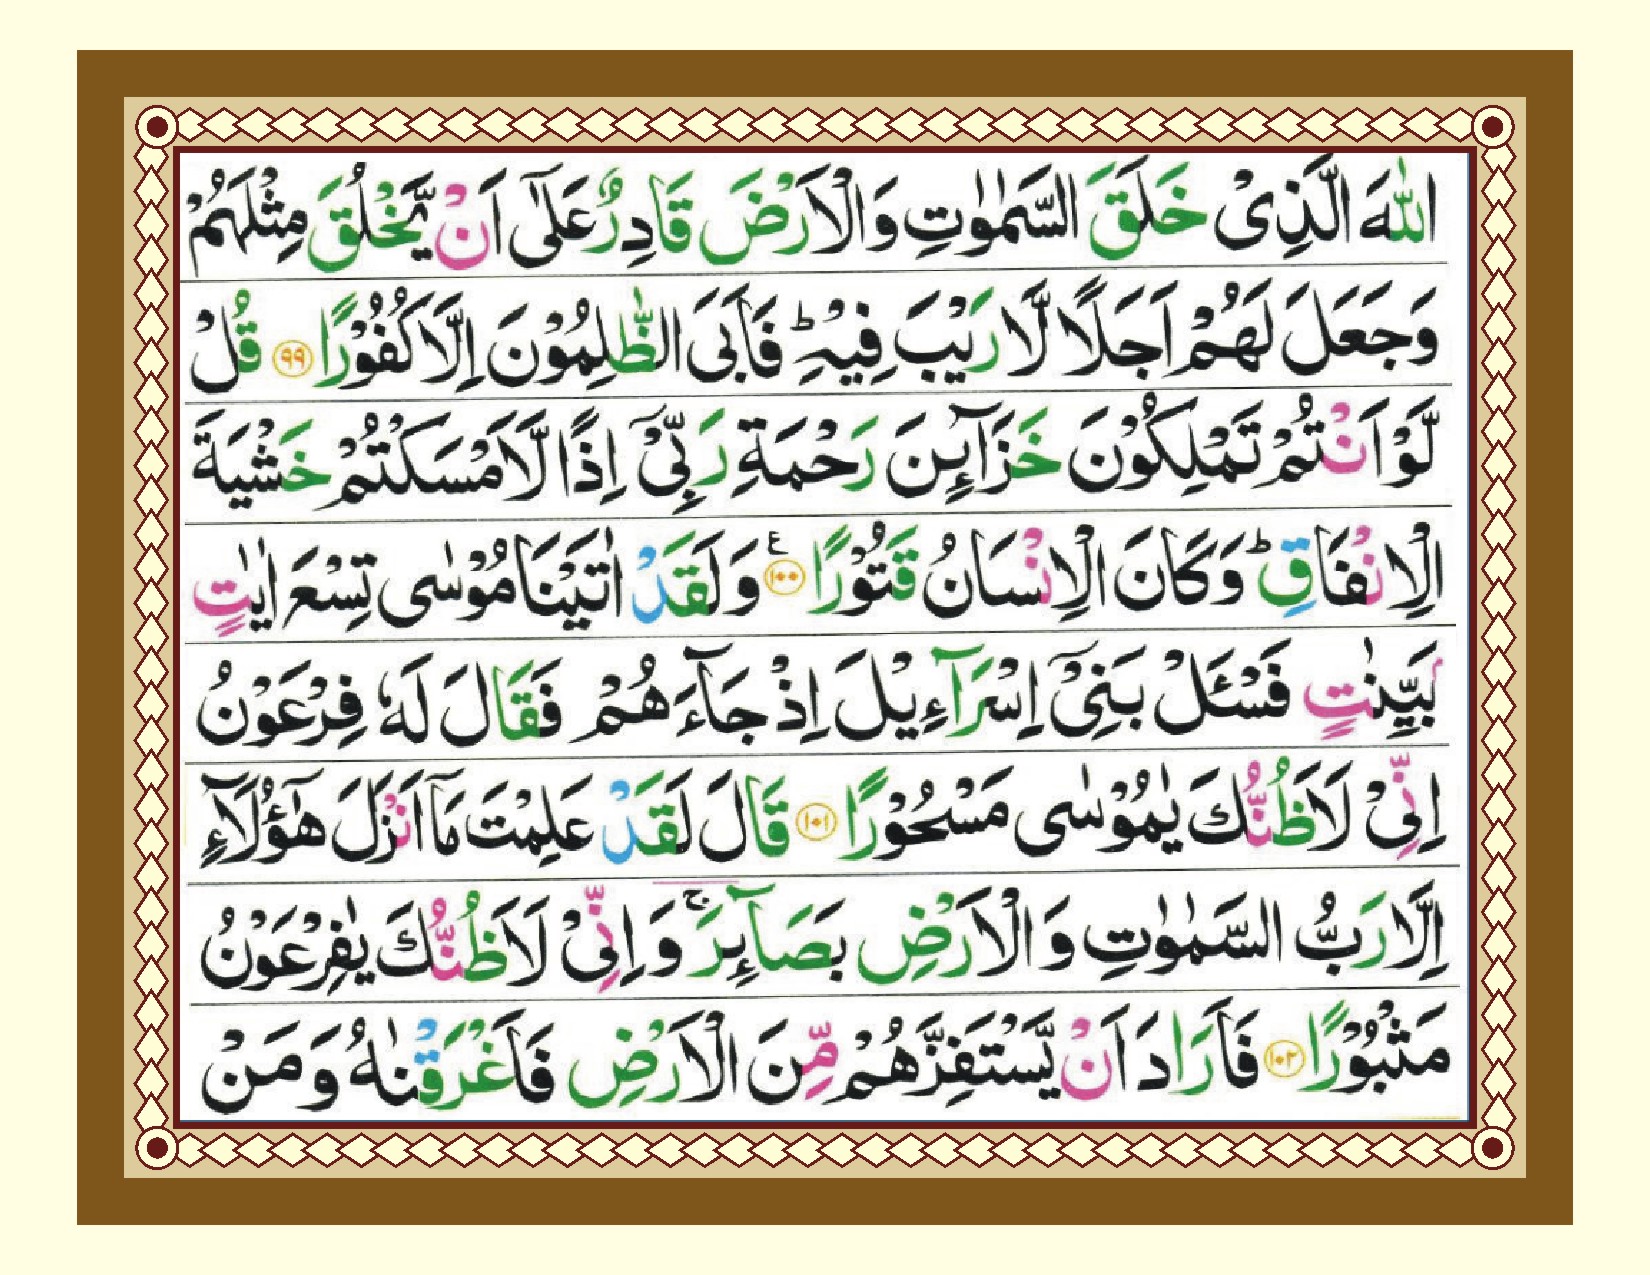 اللّٰهَ الَّذِىْ خَلَقَ السَّمٰوٰتِ وَالْاَرْضَ قَادِرٌ عَلٰٓى اَنْ يَّخْلُقَ مِثْلَهُمْ
وَجَعَلَ لَهُمْ اَجَلًا لَّا رَيْبَ فِيْهِ ؕ فَاَبَى الظّٰلِمُوْنَ اِلَّا كُفُوْرًا ۹۹ قُلْ
لَّوْ اَنْتُمْ تَمْلِكُوْنَ خَزَآئِنَ رَحْمَةِ رَبِّىْۤ اِذًا لَّاَمْسَكْتُمْ خَشْيَةَ
الْاِنْفَاقِ ؕ وَكَانَ الْاِنْسَانُ قَتُوْرًا ۱۰۰ ع وَلَقَدْ اٰتَيْنَا مُوْسٰى تِسْعَ اٰيٰتٍۭ
بَيِّنٰتٍ فَسْئَلْ بَنِىْۤ اِسْرَآءِيْلَ اِذْ جَآءَهُمْ فَقَالَ لَهٗ فِرْعَوْنُ
اِنِّىْ لَاَظُنُّكَ يٰمُوْسٰى مَسْحُوْرًا ۱۰۱ قَالَ لَقَدْ عَلِمْتَ مَاۤ اَنْزَلَ هٰٓؤُلَآءِ
اِلَّا رَبُّ السَّمٰوٰتِ وَالْاَرْضِ بَصَآئِرَ ۚ وَاِنِّىْ لَاَظُنُّكَ يٰفِرْعَوْنُ
مَثْبُوْرًا ۱۰۲ فَاَرَادَ اَنْ يَّسْتَفِزَّهُمْ مِّنَ الْاَرْضِ فَاَغْرَقْنٰهُ وَمَنْ